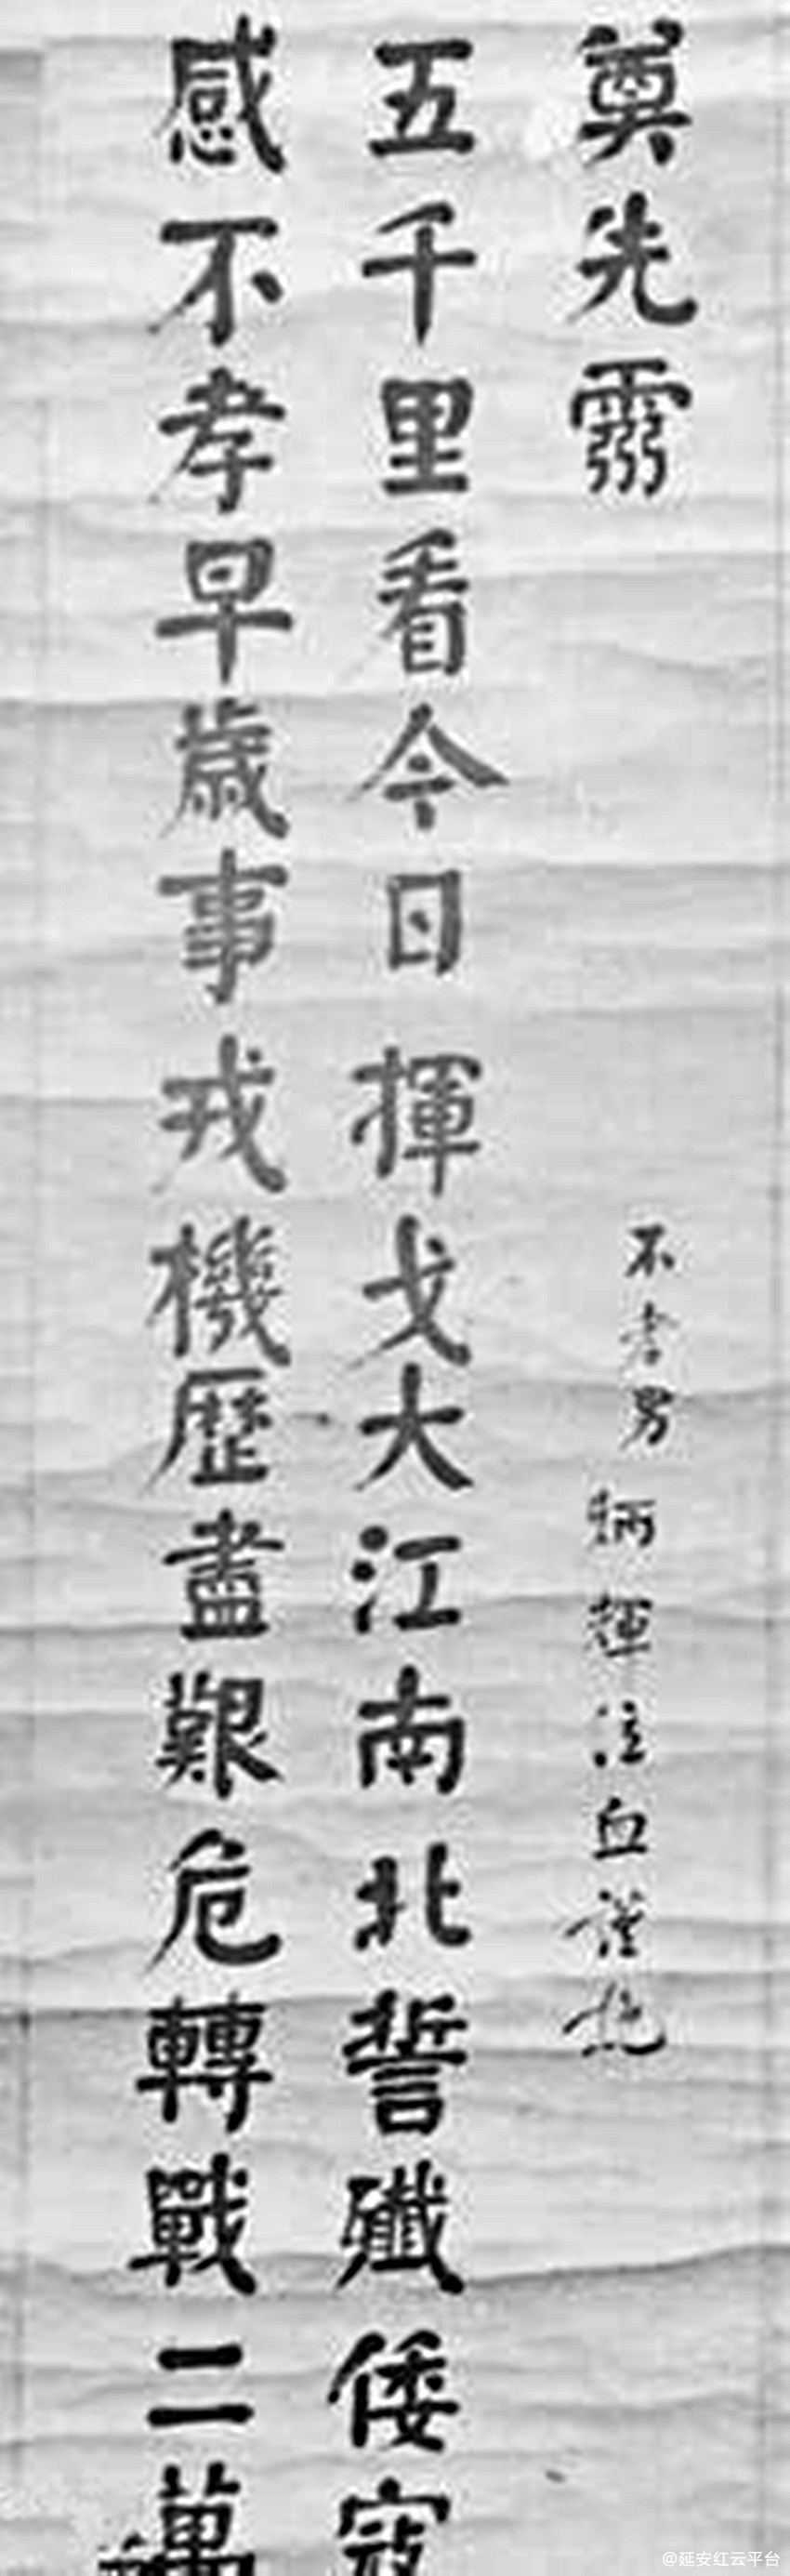 奠先靈
不孝男炳輝泣血謹挽
五千里看今日揮戈大江南北誓殲倭寇
感不孝早歲事戎機歷盡艱危轉戰二萬
@延安红云平台